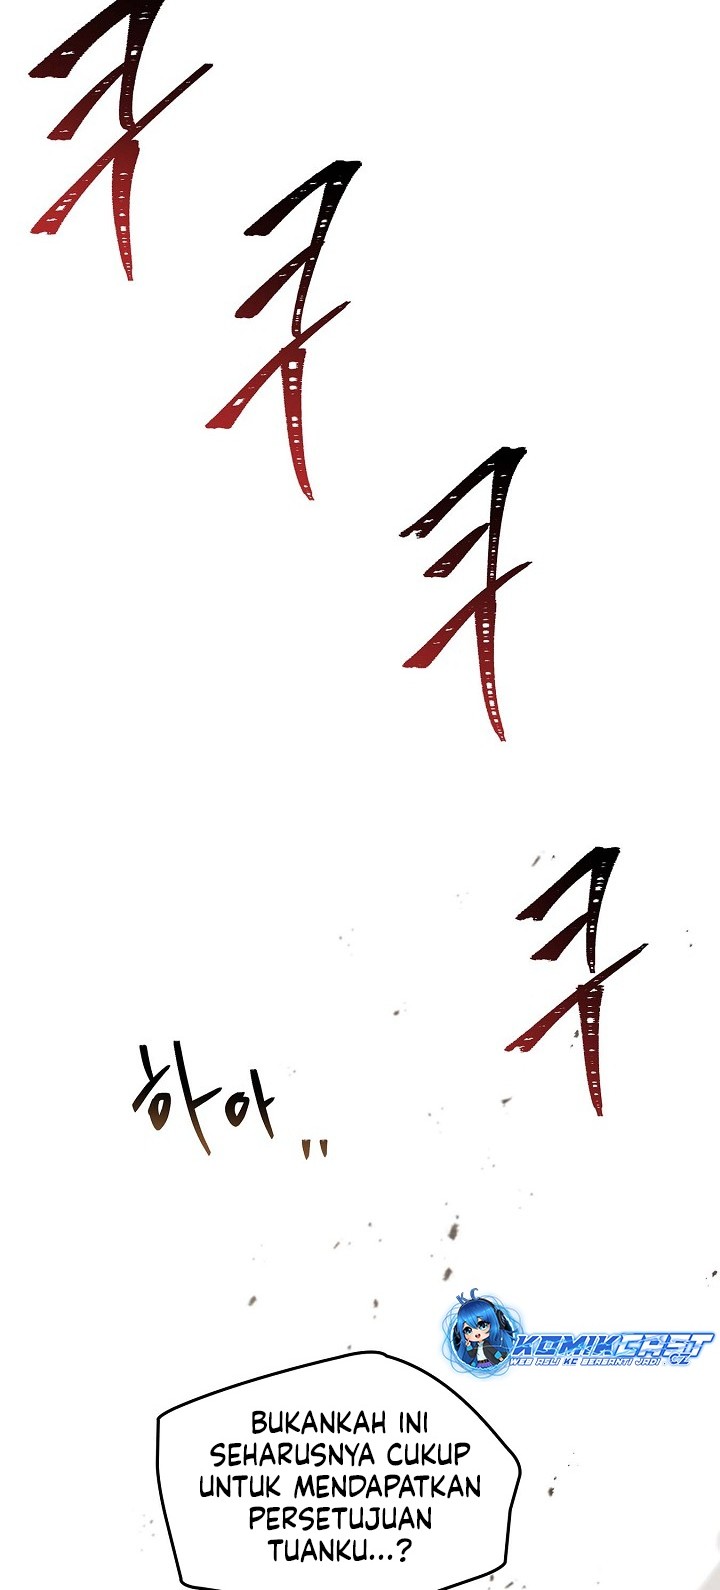 크
크
크
크
하아
KC
KOMIKCAST
WEB ASLI KC BERGANTI JADI .CZ
BUKANKAH INI
SEHARUSNYA CUKUP
UNTUK MENDAPATKAN
PERSETUJUAN
TUANKU...?